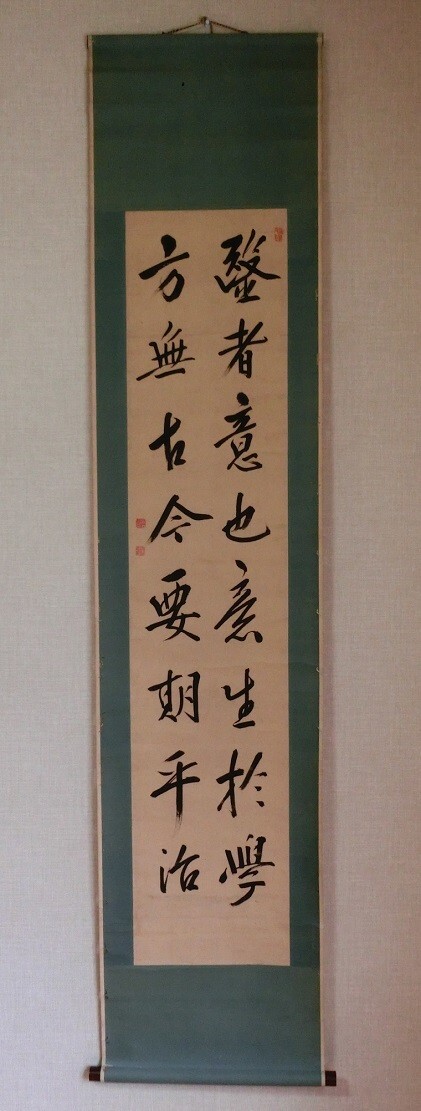 醫者意也意生於學
方無古今要期乎治